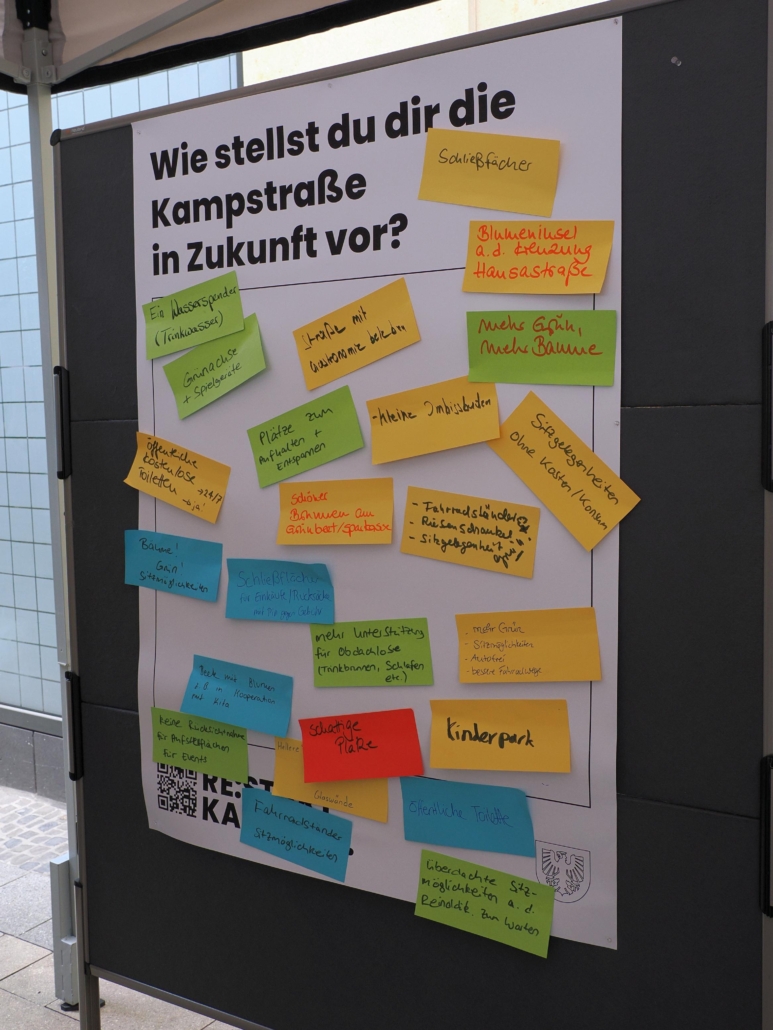 Wie stellst du dir die
Kampstraße
in Zukunft vor?
Schließfächer
Blumeninsel
a.d. Kreuzung
Hansastraße
Ein Wasserspender
(Trinkwasser)
Grünachse
+ Spielgeräte
Straße mit
Gastronomie beleben
mehr Grün,
mehr Bäume
Plätze zum
Aufhalten +
Entspannen
- kleine Imbissbuden
Sitzgelegenheiten
ohne Kosten/Konsum
öffentliche
kostenlose
Toiletten → 24/7
schöner
Brunnen am
Grünbeet/Sparkasse
- Fahrradständer
- Riesenschaukel
- Sitzgelegenheit
Bäume!
Grün!
Sitzmöglichkeiten
Schließfächer
für Einkäufe/Rucksäcke
mehr Unterstützung
für Obdachlose
(Trinkbrunnen, Schlafen
etc.)
- mehr Grün
- Sitzmöglichkeiten
- Autofrei
- bessere Fahrradwege
Beete mit Blumen
z.B. in Kooperation
mit Kita
keine Rücksichtnahme
für Aufstellflächen
für Events
schattige
Plätze
Kinderpark
Glaswände
RE:ST
KA
Fahrradständer
Sitzmöglichkeiten
öffentliche Toilette
überdachte Sitz-
möglichkeiten a.d.
Reinoldik. zum Warten